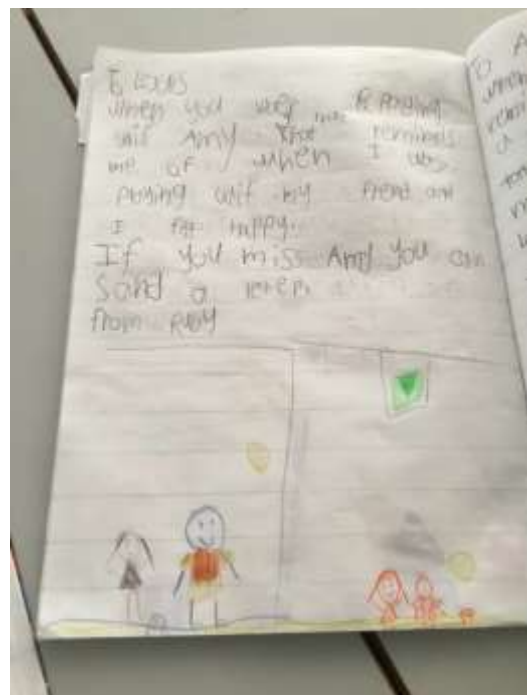 To
when you were playing
wif Amy that reminds
me of when I was
playing wif my friend and
I felt happy.
If you miss Amy you can
Sand a leter.
from Ruby
To A
when
remi
a